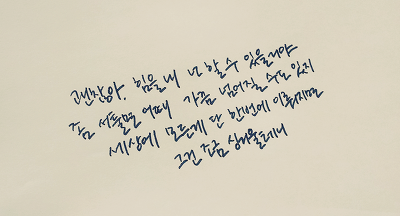 괜찮아. 힘을 내 넌 할 수 있을거야
좀 서툴면 어때 가끔 넘어질 수도 있지
세상에 모든게 단 한번에 이뤄지면
그건 조금 싱거울테니